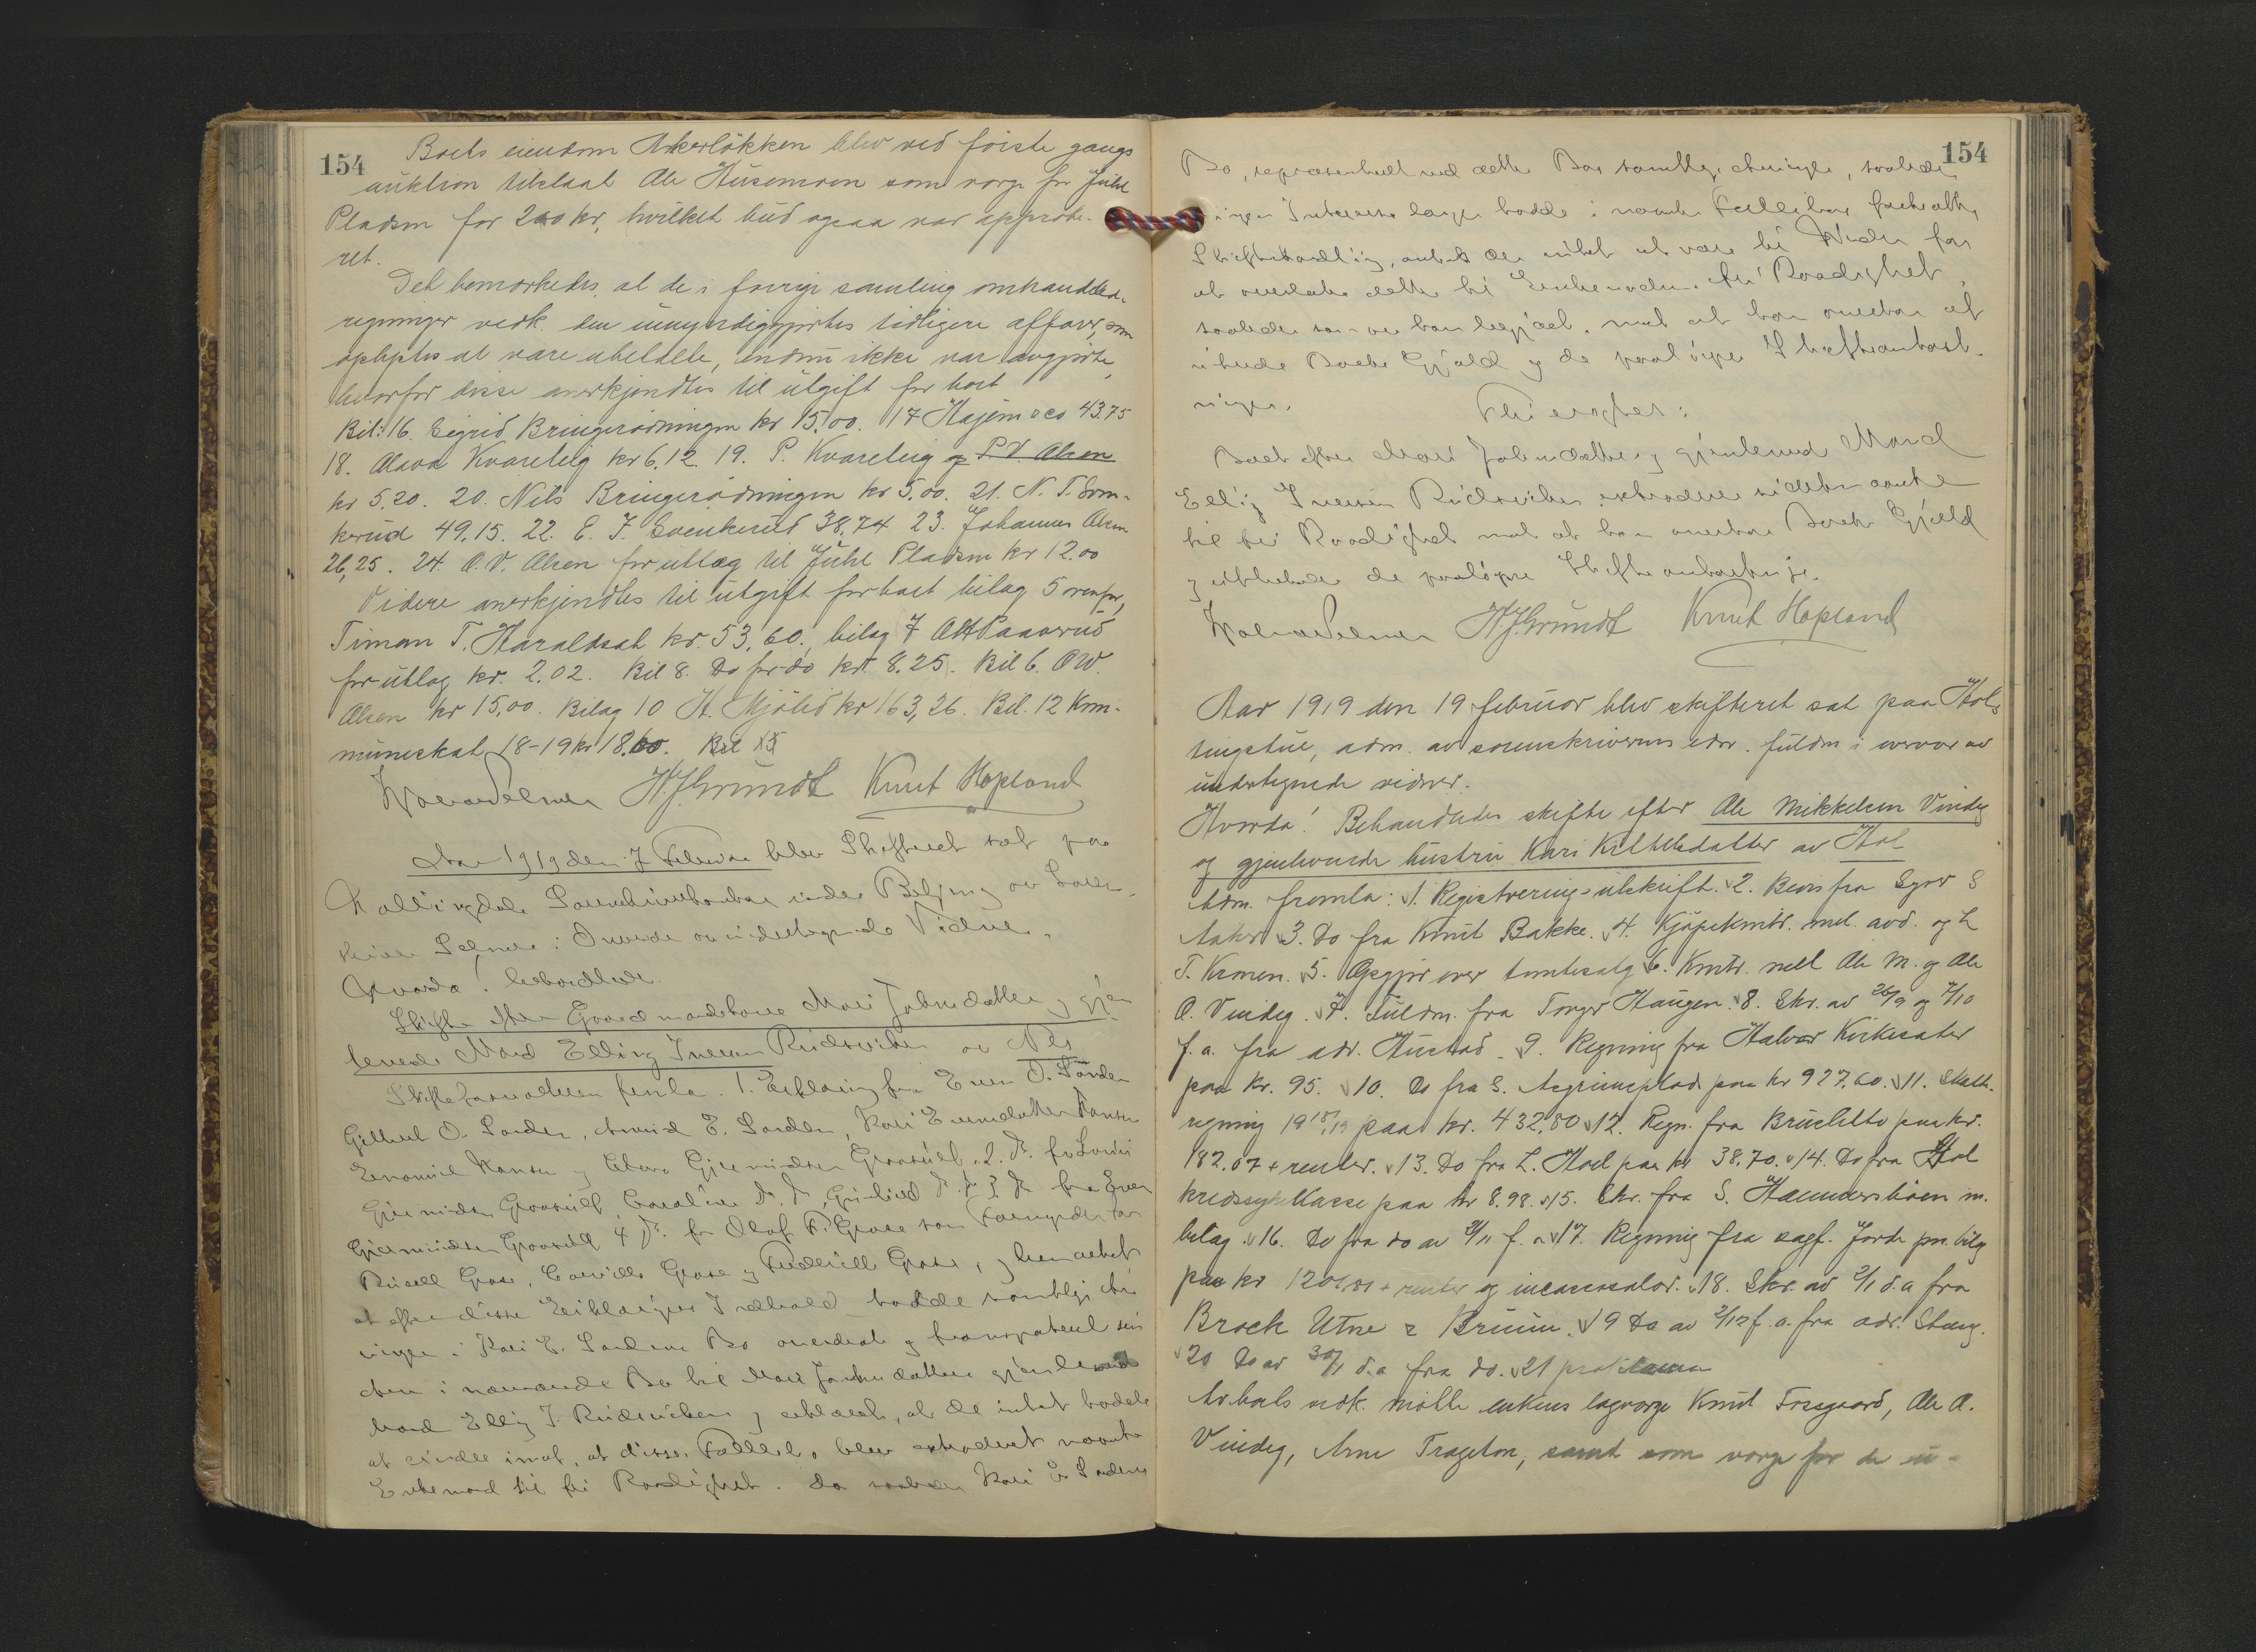 154
Boets eiendom Akerløkken blev ved første gangs
auktion tilslaat Ole Husemoen som verge for Juhl
Pladsen for 200 kr, hvilket bud ogsaa var approbe-
ret.
Det bemerkedes, at de i forrige samling omhandlede
regninger vedk. den umyndiggjortes tidligere affærer, som
oplystes at være ubetalte, endnu ikke var avgjorte,
hvorfor disse anerkjendtes til utgift for boet
Bil: 16. Sigrid Bringerødningen kr 15,00. 17 Hagem & co 43.75
18. Olava Kvarelig kr 6,12. 19. P. Kvarelig og P.V. Olsen
kr 5.20. 20. Nils Bringerødningen kr 5,00. 21. N. T. Svem-
kerud 49,15. 22. E. J. Svenkerud 38,74 23. Johannes Olsen
26,25. 24. O.V. Olsen for utlæg til Juhl Pladsen kr 12.00
Videre anerkjendtes til utgift for boet bilag 5 ovenfor,
Timan T. Haraldset kr. 53,60., bilag 7 Paaverud
for utlæg kr. 2.02. Bil 8. Do for do kr. 8.25. Bil 6. OW.
Olsen kr 15,00. Bilag 10 H. Mjølid kr 163,26. Bil. 12 Kom-
muneskat 18-19 kr 18.60. Bil 15
H.J.Grundt Knut Hopland
Aar 1919 den 7 Februar blev Skifteret sat paa
Hallingdals Sorenskriverkontor under Betjening av Soren-
skriver Selmer i Overvær av undertegnede Vidner.
Hvorda! behandledes
Skifte efter Gaardmandskone Mari Johnsdatter og gjen
levende Mand Elling Iversen Rudsviken av Nes
Skifteforvalteren fremla. 1. Erklæring fra Even O. Sorden
Gilbert O. Sorden, E. Sorden, Kari Evensdatter Hansen
Hansen og Gjermundsen Graasuld. 2. Do. fra
Gjermundsen Graasuld, Caroline Do. Do, Do. 3 Do fra Even
Gjermundsen Graasuld 4 Do. fra Olaf Grove som Formynder for
Russell Grove, Grove og Grove, og bemærket
at efter disse Erklæringers Indhold havde samtlige Ar-
vinger i Kari E. Sordens Bo overdrat og transporteret sin
Arv i nærværende Bo til Mari Johnsdatters gjenlevende
Mand Elling I. Rudsviken og erklæret, at de intet havde
at erindre imot, at disses Fællesbo blev extraderet nævnte
Enkemand til fri Raadighet. Da saaledes Kari E. Sordens
154
Bo, repræsenteret ved dette Bos samtlige Arvinger, saaledes
ingen Interesse længer havde i nævnte Fællesbos fortsatte
Skiftebehandling, antokes der intet at være til Hinder for
at overlate dette til Enkemanden til fri Raadighet,
saaledes som av ham begjært, mot at han overtar at
utrede Boets Gjæld og de paaløpne Skifteomkost-
ninger.
Thi eragtes:
Boet efter Mari Johnsdatter og gjenlevende Mand
Elling Iversen Rudsviken extraderes sidstnævnte
til fri Raadighet mot at han overtar Boets Gjæld
og utbetaler de paaløpne Skifteomkostninger.
H.J.Grundt Knut Hopland
Aar 1919 den 19 februar blev skifteret sat paa Hols
tingstue, adm. av sorenskriverens edsv. fuldm i overvær av
undertegnede vidner.
Hvorda! Behandledes skifte efter Ole Mikkelsen Vindeg
og gjenlevende hustru Kari Kittelsdatter av Hol
Adm. fremla: 1. Registreringsutskrift. 2. Bevis fra Syver S
Aaker 3. Do fra Knut Bakke. 4. Kjøpekontr. mel. avd. og L
T. Kromen. 5. Opgjør over tomtesalg 6. Kontr. mell Ole M. og Ole
O. Vindeg. 7. Fuldm. fra Torger Haugen. 8. Skr. av 26/9 og 7/10
f. a. fra adv. Hustad. 9. Regning fra Halvor Kirkesæter
paa kr. 95. 10. Do fra S. Asgrimsplads paa kr 927,60. 11. Skatte-
regning 1918/19 paa kr. 432,80 12. Regn. fra Brusletto paa kr.
182.07 + renter. 13. Do fra L. Hoel paa kr 38.70. 14. Do fra Hol
kredssykekasse paa kr 8.98. 15. Skr. fra S. Hammersbøen m.
bilag. 16. Do fra do av 21/11 f. a. 17. Regning fra sagf. Jorde pr. bilag
paa kr 1204,81 + renter og incassosalær. 18. Skr. av 2/1 d.a fra
Brock Utne & Bruun. 19 Do av 2/12 f. a. fra adv. Stang.
20 Do av 30/1 d.a fra do. 21 proklama
Av boets vedk. møtte enkens lagverge Knut Fossgaard, Ole O.
Vindeg, Arne Trageton, samt som verge for de u-